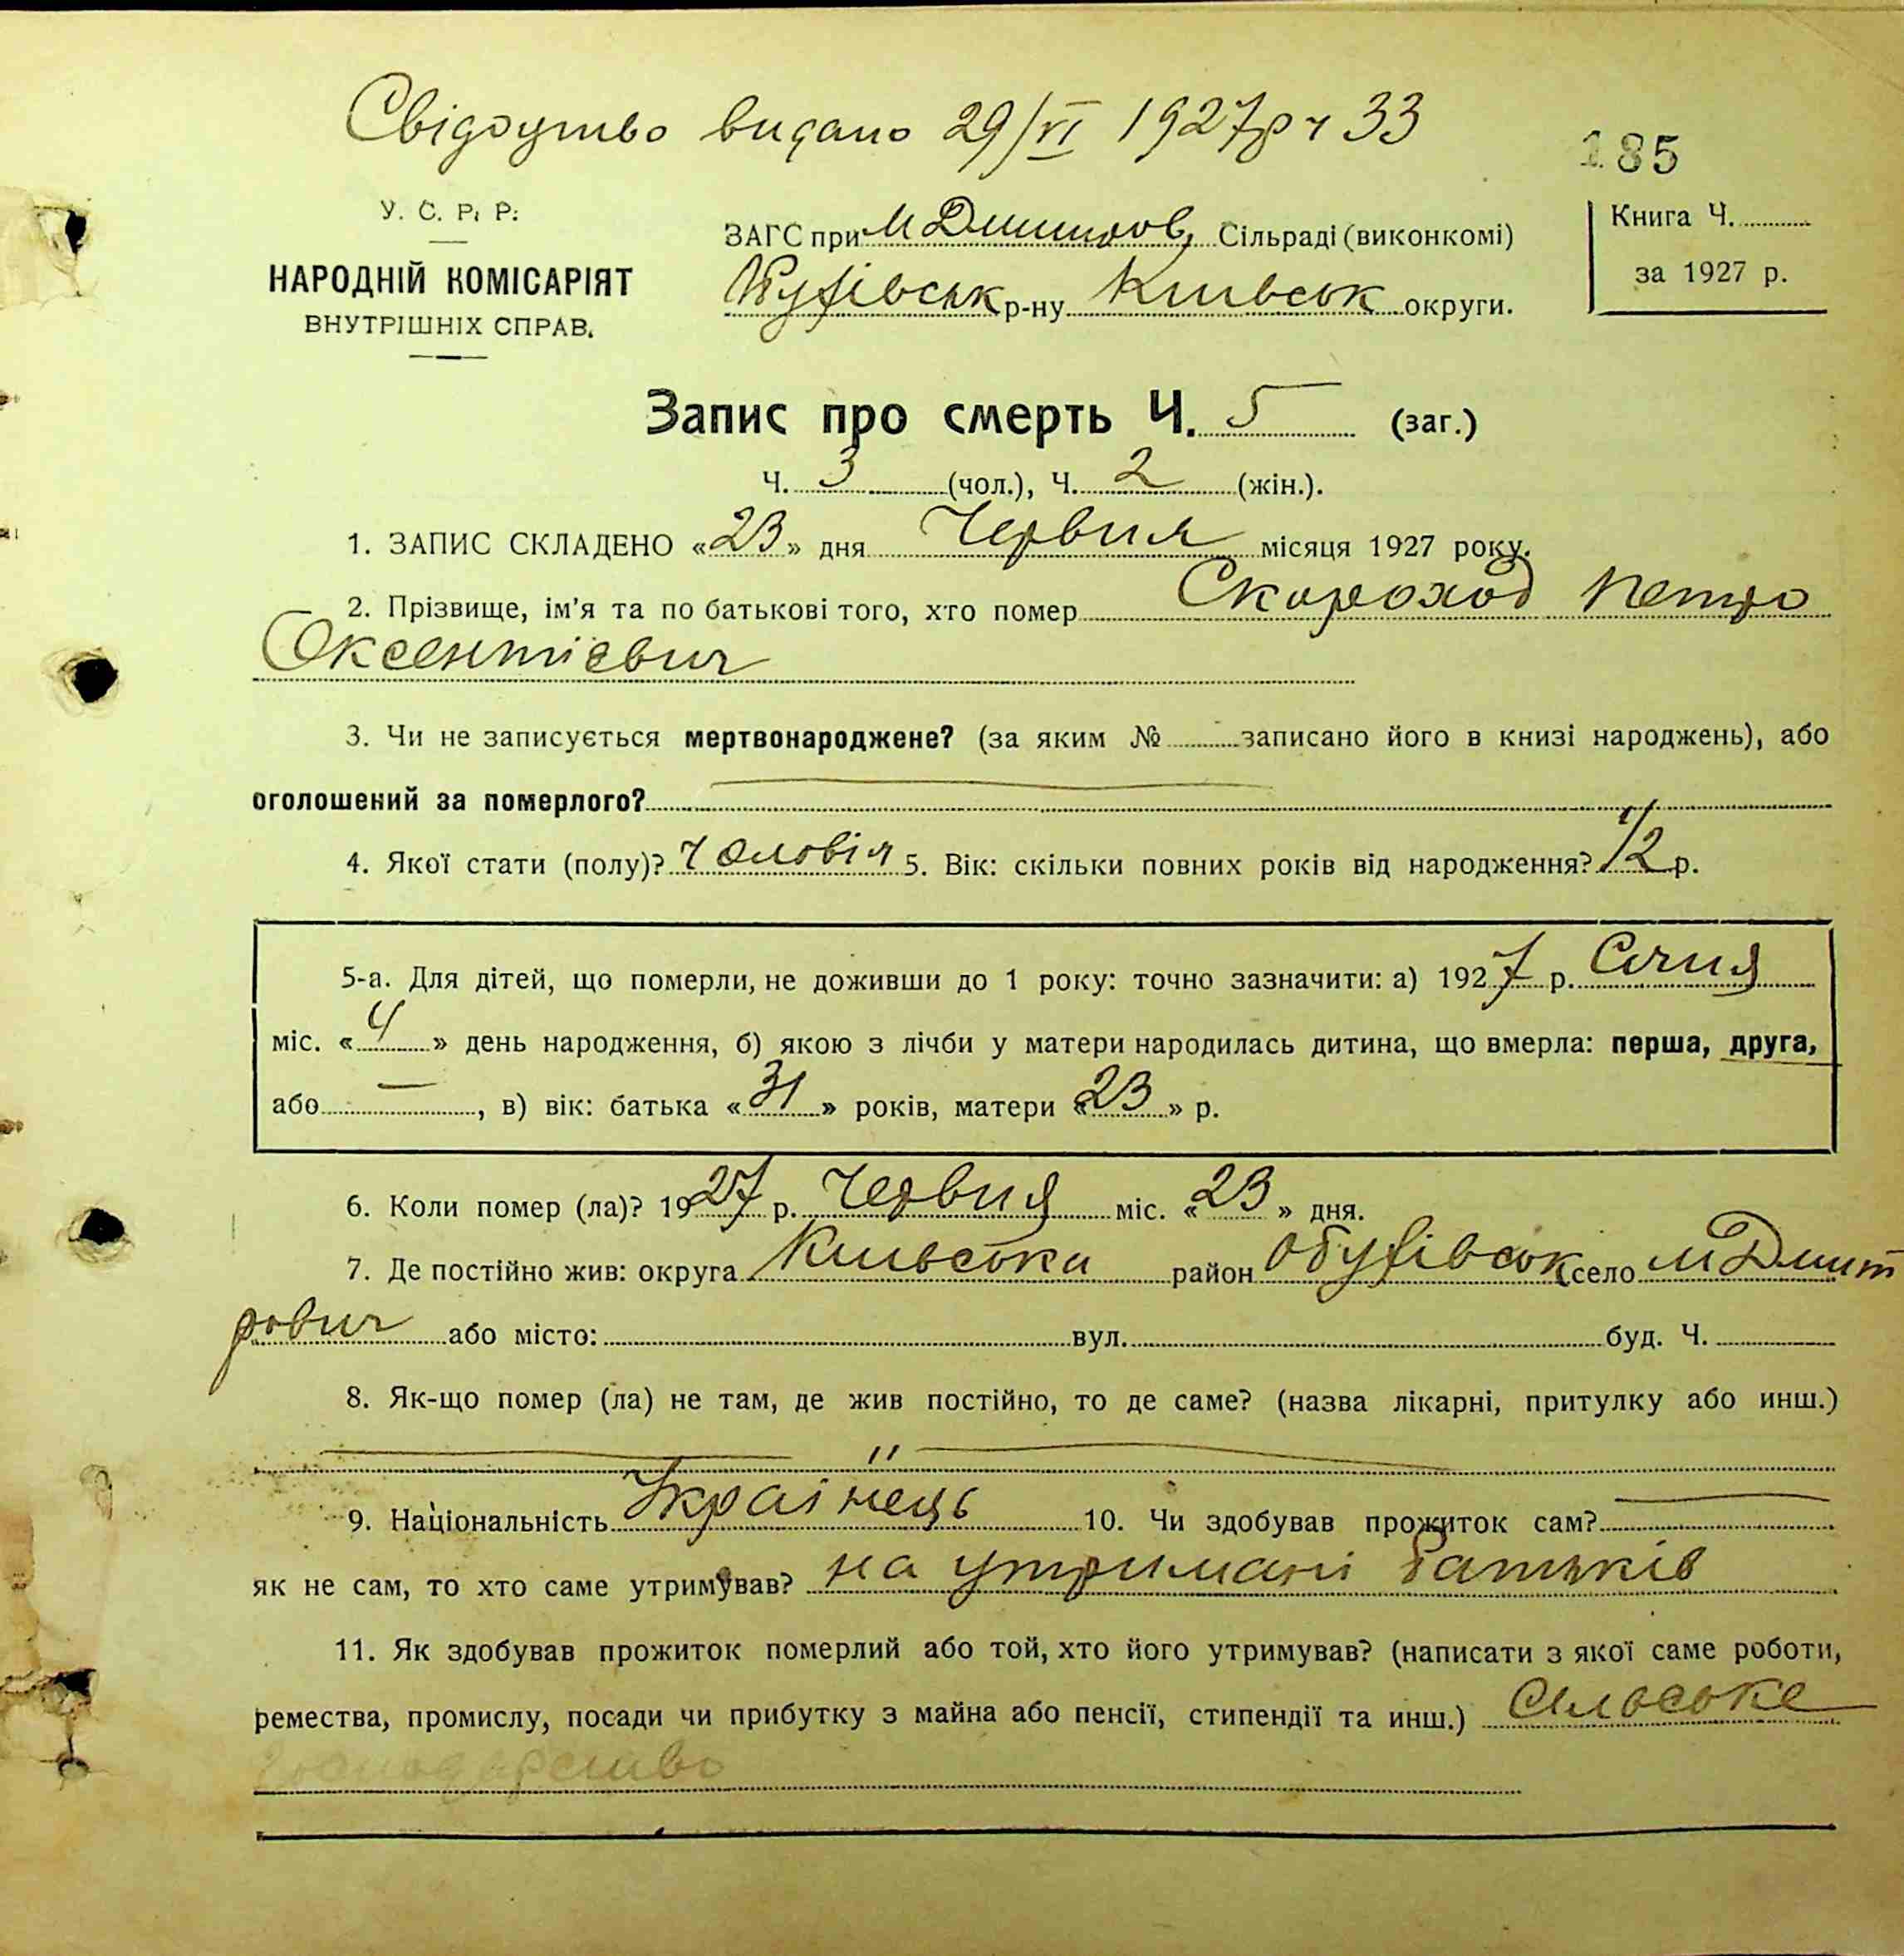 Свідоцтво видано 29/VI 1927р ч 33
185
У. С. Р. Р.
НАРОДНІЙ КОМІСАРІЯТ
ВНУТРІШНІХ СПРАВ.
ЗАГС при М Дмитров, Сільраді (виконкомі)
р-ну Київськ округи.
Книга Ч.
за 1927 р.
Запис про смерть Ч. 5 (заг.)
Ч. 3 (чол.), Ч. 2 (жін.).
1. ЗАПИС СКЛАДЕНО «23» дня Червня місяця 1927 року.
2. Прізвище, ім'я та по батькові того, хто помер Скороход Петро
Оксентієвич
3. Чи не записується мертвонароджене? (за яким № записано його в книзі народжень), або
оголошений за померлого?
4. Якої стати (полу)? Чоловіч 5. Вік: скільки повних років від народження? 1/2 р.
5-а. Для дітей, що померли, не доживши до 1 року: точно зазначити: а) 1927 р. Січня
міс. «4» день народження, б) якою з лічби у матери народилась дитина, що вмерла: перша, друга,
або —, в) вік: батька «31» років, матери «23» р.
6. Коли помер (ла)? 1927 р. Червня міс. «23» дня.
7. Де постійно жив: округа Київська район Обухівськ село М Дмит
рович або місто: вул. буд. Ч.
8. Як-що помер (ла) не там, де жив постійно, то де саме? (назва лікарні, притулку або инш.)
— " —
9. Національність Українець 10. Чи здобував прожиток сам? —
як не сам, то хто саме утримував? на утримані батьків
11. Як здобував прожиток померлий або той, хто його утримував? (написати з якої саме роботи,
ремества, промислу, посади чи прибутку з майна або пенсії, стипендії та инш.) Сільське
господарство